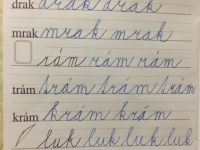 drak drak drak
mrak mrak mrak
rám rám rám
trám trám trám trám
krám krám krám
luk luk luk luk